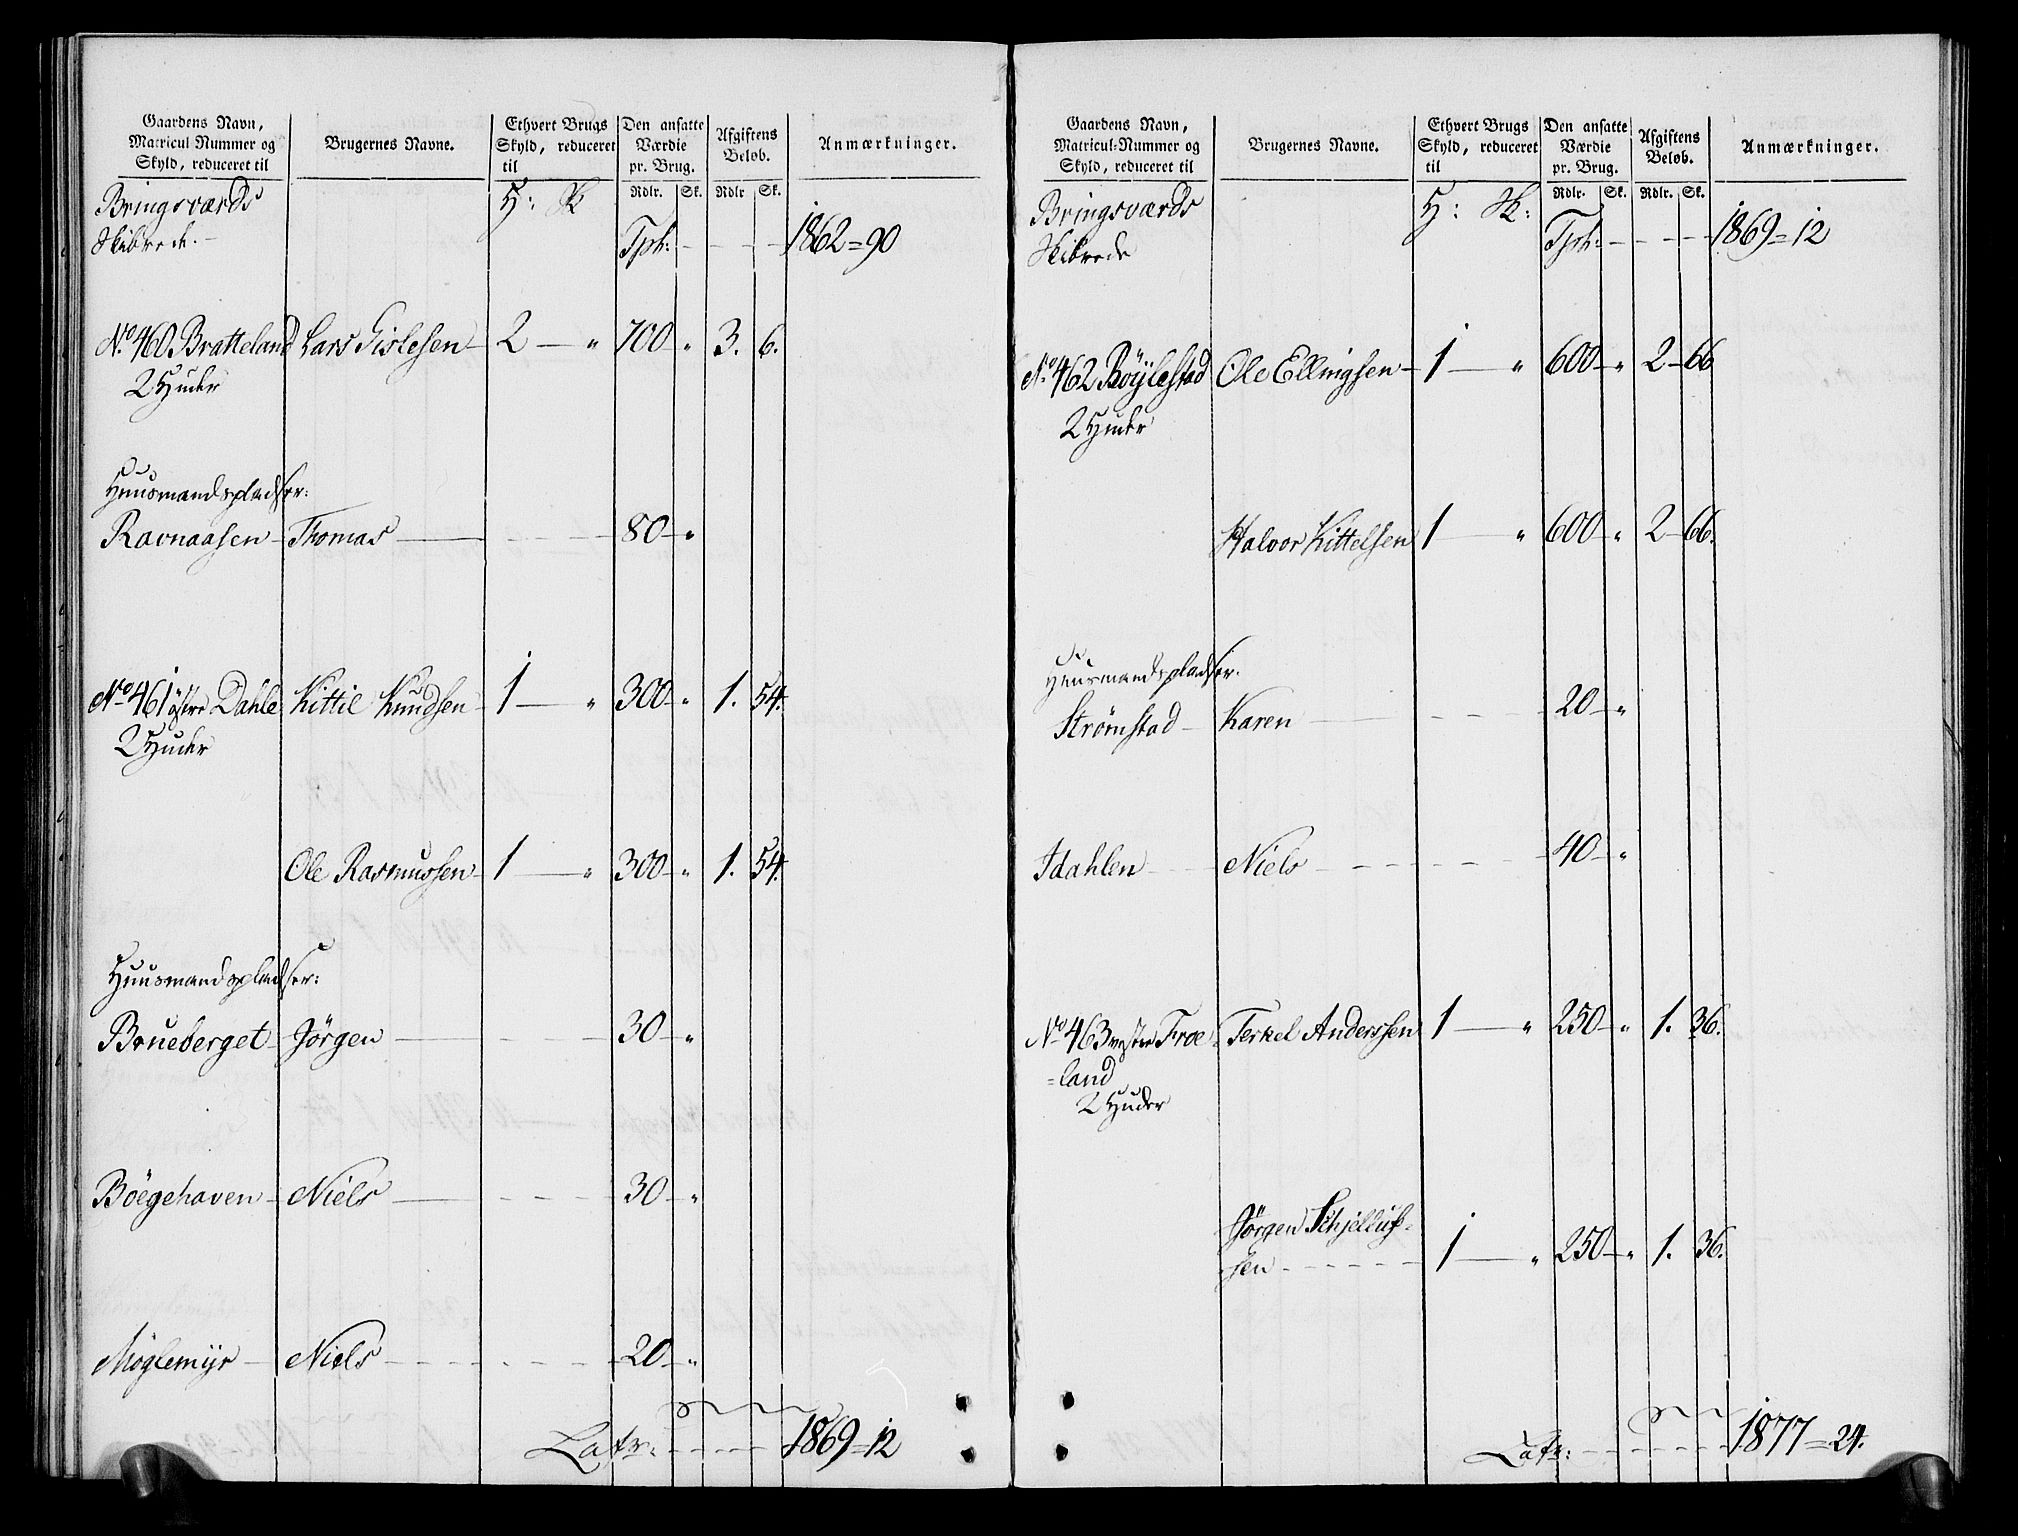 Gaardens Navn, Matricul Nummer og Skyld, reduceret til | Brugernes Navne. | Ethvert Brugs Skyld, reduceret til | Den ansatte Værdie pr. Brug. | Afgiftens Beløb. | Anmærkninger.
Bringsværds | H: Sk | Rdlr. Sk. | Rdlr Sk.
Skibrede.- | Tpt: - - - - 1862=90
No. 460. Bratteland | Lars Gislesen | 2 — " | 700 — " | 3. 6.
2 Huder
Huusmandspladser:
Ravnaasen | Thomas | 80 — "
No. 461 østre Dahle | Kittil Knudsen | 1 — " | 300 — " | 1. 54.
2 Huder
Ole Rasmussen | 1 — " | 300 — " | 1. 54.
Huusmandspladser:
Brueberget | Jörgen | 30 — "
Böegehaven | Niels | 30 — "
Möglemÿr | Niels | 20 — "
Latr: - - - - 1869=12
Gaardens Navn, Matricul-Nummer og Skyld, reduceret til | Brugernes Navne. | Ethvert Brugs Skyld, reduceret til | Den ansatte Værdie pr. Brug. | Afgiftens Beløb. | Anmærkninger.
Bringsværds | H: Sk: | Rdlr. Sk. | Rdlr. Sk.
Skibrede | Tpt: - - - - 1869=12
No. 462 Böÿlestad | Ole Ellingsen | 1 — " | 600 — " | 2 — 66
2 Huder
Halvor Kittelsen | 1 — " | 600 — " | 2 — 66.
Huusmandspladser:
Strømstad | Karen | 20 — "
Idahlen | Niels | 40 — "
No. 463 vestre Froe | Terkel Anderssen | 1 — " | 250 — " | 1. 36.
=land
2 Huder
Jörgen Schjelluf=
sen | 1 — " | 250 — " | 1. 36.
Latr: - - - - 1877=24.